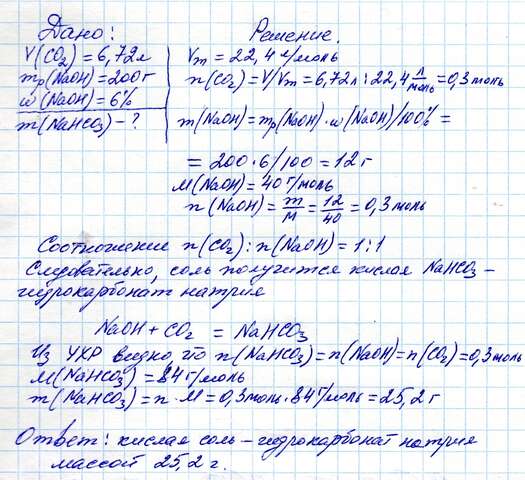 Дано:
V(CO2) = 6,72л
mр(NaOH) = 200г
ω(NaOH) = 6%
m(NaHCO3) - ?
Решение.
Vm = 22,4 л/моль
n(CO2) = V/Vm = 6,72л : 22,4 л/моль = 0,3 моль
m(NaOH) = mр(NaOH) · ω(NaOH)/100% =
= 200 · 6/100 = 12 г
M(NaOH) = 40 г/моль
n(NaOH) = m/M = 12/40 = 0,3 моль
Соотношение n(CO2) : n(NaOH) = 1:1
Следовательно, соль получится кислая NaHCO3 –
гидрокарбонат натрия
NaOH + CO2 = NaHCO3
Из УХР видно, что n(NaHCO3) = n(NaOH) = n(CO2) = 0,3 моль
M(NaHCO3) = 84 г/моль
m(NaHCO3) = n · M = 0,3 моль · 84 г/моль = 25,2 г
Ответ: кислая соль – гидрокарбонат натрия
массой 25,2 г.